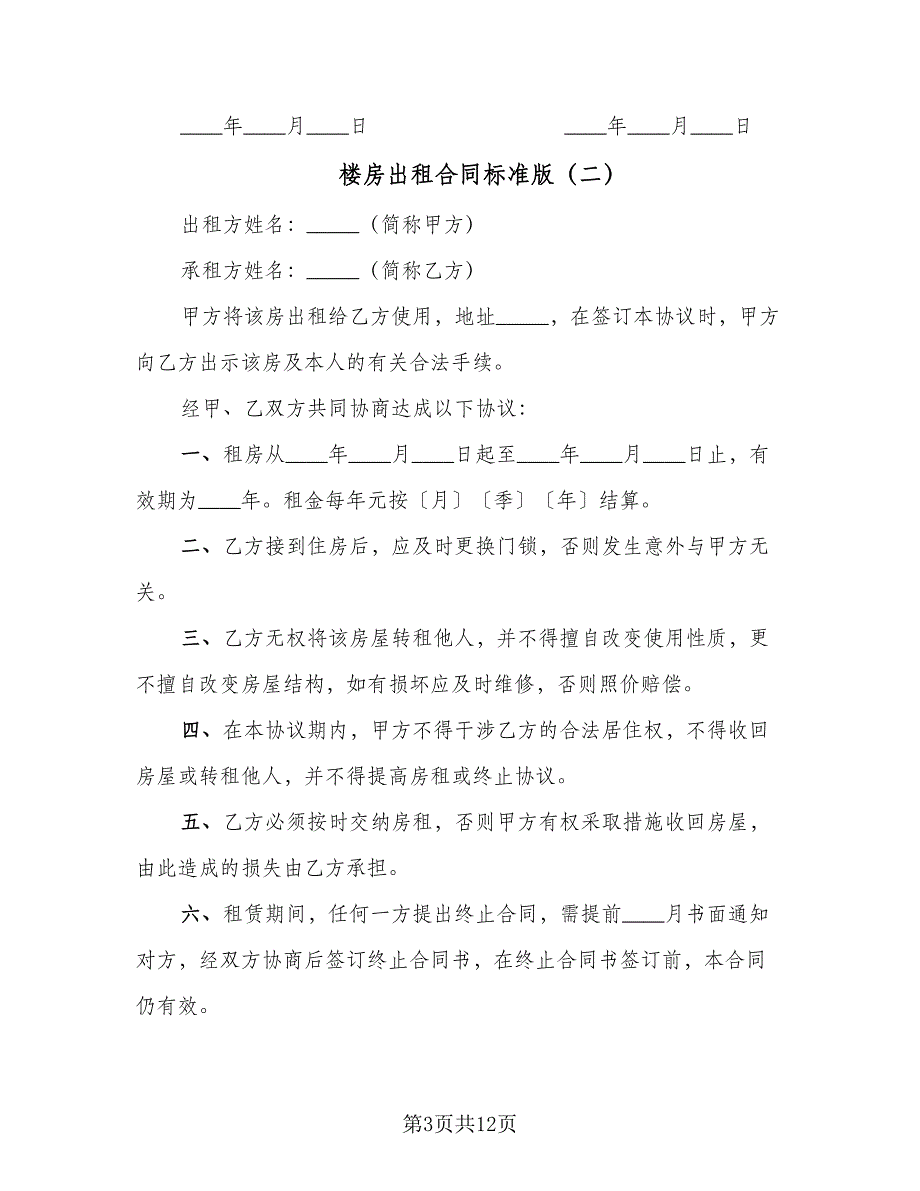 ____年____月____日 ____年____月____日
楼房出租合同标准版（二）
出租方姓名：_____（简称甲方）
承租方姓名：_____（简称乙方）
甲方将该房出租给乙方使用，地址_____，在签订本协议时，甲方
向乙方出示该房及本人的有关合法手续。
经甲、乙双方共同协商达成以下协议：
一、租房从____年____月____日起至____年____月____日止，有
效期为____年。租金每年元按〔月〕〔季〕〔年〕结算。
二、乙方接到住房后，应及时更换门锁，否则发生意外与甲方无
关。
三、乙方无权将该房屋转租他人，并不得擅自改变使用性质，更
不擅自改变房屋结构，如有损坏应及时维修，否则照价赔偿。
四、在本协议期内，甲方不得干涉乙方的合法居住权，不得收回
房屋或转租他人，并不得提高房租或终止协议。
五、乙方必须按时交纳房租，否则甲方有权采取措施收回房屋，
由此造成的损失由乙方承担。
六、租赁期间，任何一方提出终止合同，需提前____月书面通知
对方，经双方协商后签订终止合同书，在终止合同书签订前，本合同
仍有效。
第3页共12页